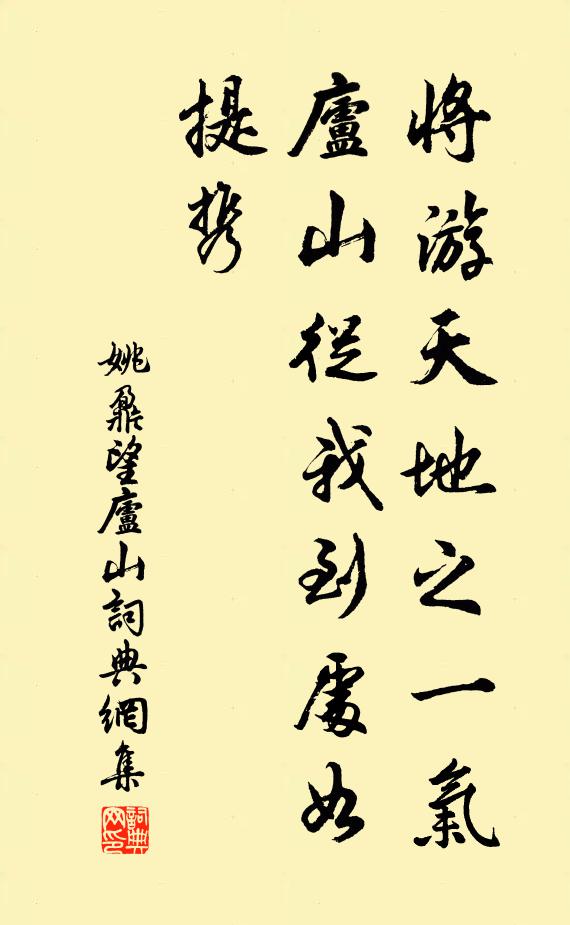 将游天地之一氣
廬山從我到處如
提携
姚鼐望廬山詞典網集
詞典网印